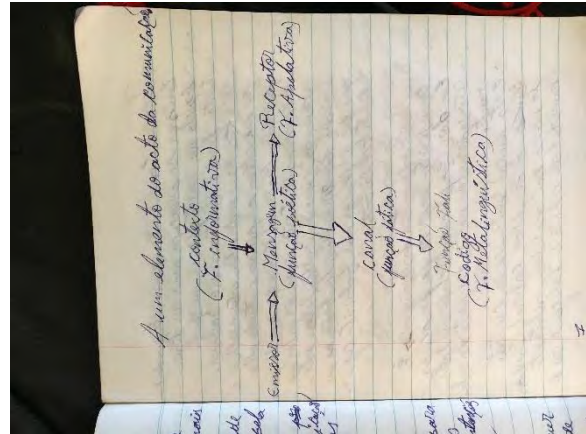 A um elemento do acto da comunicação
contexto
(F. informativa)
Emissor Mensagem Receptor
(função poética) (F. Apelativa)
canal
(função fática)
Função Fati
Codigo
(F. Metalinguística)